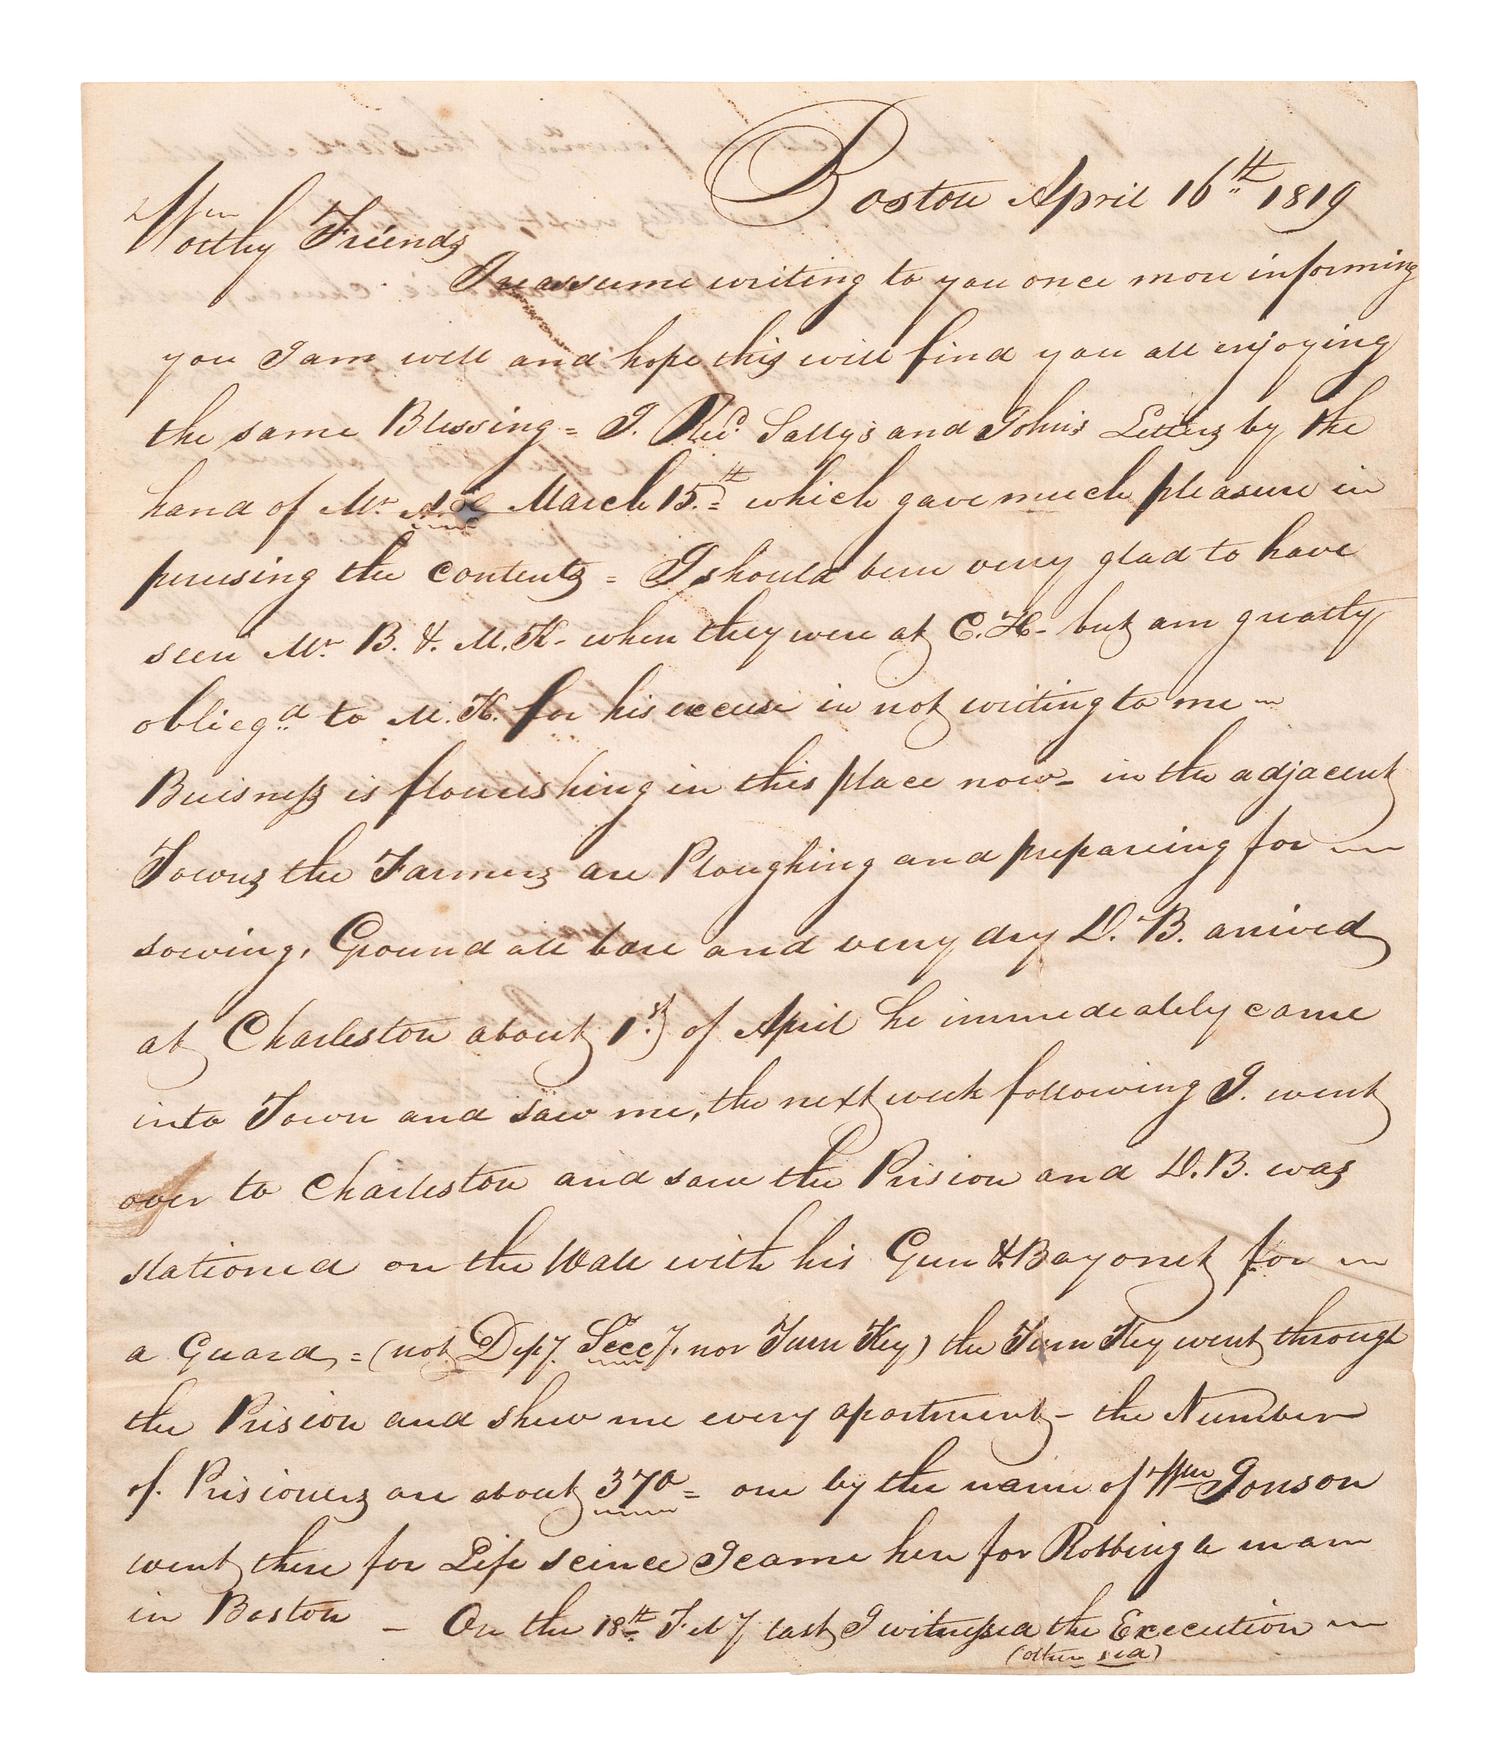 Boston April 16th 1819
Worthy Friends
I reassume writing to you once more informing
you I am well and hope this will find you all enjoying
the same Blessing = I. Recd. Sally's and John's Letters by the
hand of Mr March 15.th which gave much pleasure in
perusing the contents = I should been very glad to have
seen Mr B. & M. K- when they were at C. H- but am greatly
obliegd to M. K. for his excuse in not writing to me ~
Buisness is flourishing in this place now - in the adjacent
Towns the Farmers are Ploughing and prepareing for ~
sowing, Ground all bare and very dry D. B. arrived
at Charleston about 1st of April he immedeately came
into Town and saw me, the next week following I. went
over to Charleston and saw the Prision and D. B. was
stationed on the Wall with his Gun & Bayonet for ~
a Guard, = (not Depy. Secy. nor Turn Key) the Turn Key went through
the Prision and shew me every apartment - the Number
of. Prisioners are about 370 = one by the name of Wm Jonson
went there for Life seince I came here for Robbing a man
in Boston - On the 18th Feby last I witnessed the Execution ~
(other sid)